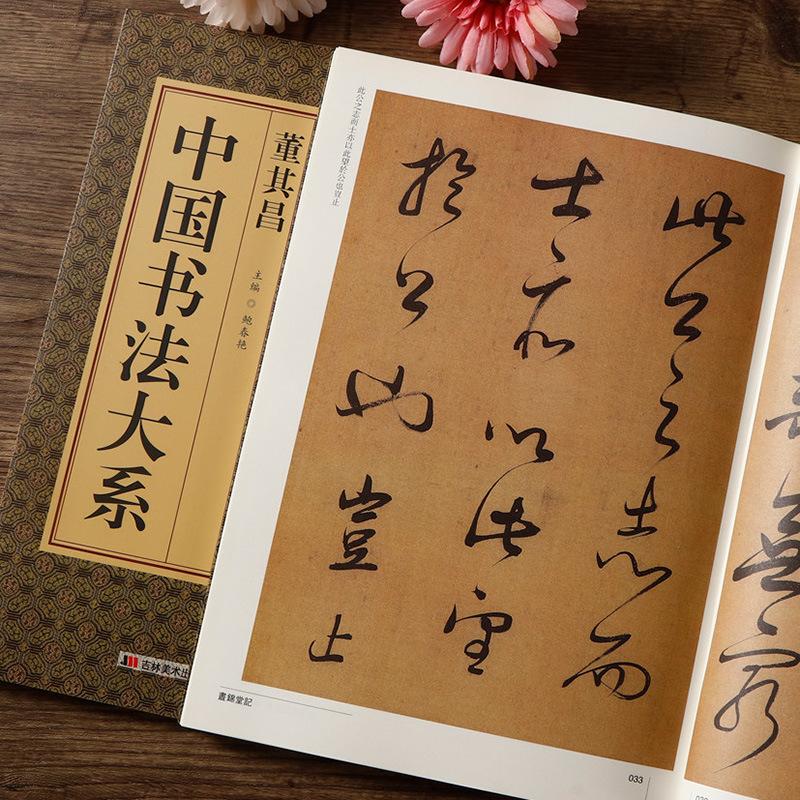 董其昌
中国书法大系
主编 ◎ 鲍春艳
吉林美术出
無窮
此公之志而
士亦以此望
於公也豈止
此公之志而士亦以此望於公也豈止
晝錦堂記
033